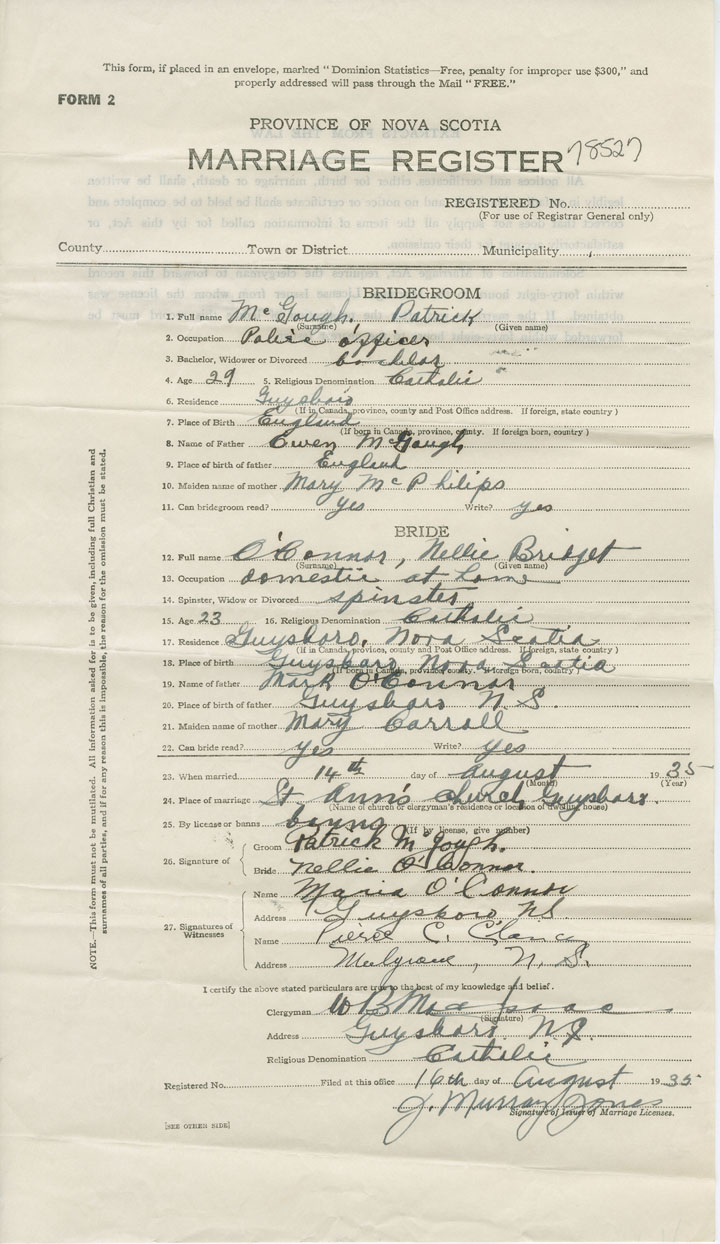 This form, if placed in an envelope, marked "Dominion Statistics—Free, penalty for improper use $300," and
properly addressed will pass through the Mail "FREE."
FORM 2
PROVINCE OF NOVA SCOTIA
MARRIAGE REGISTER 78527
REGISTERED No.
(For use of Registrar General only)
County Town or District Municipality
BRIDEGROOM
1. Full name McGough, Patrick
(Surname) (Given name)
2. Occupation Police officer
3. Bachelor, Widower or Divorced bachelor
4. Age 29 5. Religious Denomination Catholic
6. Residence Guysboro
(If in Canada, province, county and Post Office address. If foreign, state country)
7. Place of Birth England
(If born in Canada, province, county. If foreign born, country)
8. Name of Father Owen McGough
9. Place of birth of father England
10. Maiden name of mother Mary McPhilips
11. Can bridegroom read? yes Write? yes
BRIDE
12. Full name O'Connor, Nellie Bridget
(Surname) (Given name)
13. Occupation domestic at home
14. Spinster, Widow or Divorced spinster
15. Age 23 16. Religious Denomination Catholic
17. Residence Guysboro, Nova Scotia
(If in Canada, province, county and Post Office address. If foreign, state country)
18. Place of birth Guysboro Nova Scotia
(If born in Canada, province, county. If foreign born, country)
19. Name of father Mark O'Connor
20. Place of birth of father Guysboro N.S.
21. Maiden name of mother Mary Carroll
22. Can bride read? yes Write? yes
23. When married 14th day of August 1935
(Month) (Year)
24. Place of marriage St. Ann's church, Guysboro.
(Name of church or clergyman's residence or location of dwelling house)
25. By license or banns banns
(If by license, give number)
26. Signature of
Groom Patrick McGough.
Bride Nellie O'Connor.
27. Signatures of Witnesses
Name Maria O'Connor
Address Guysboro NS
Name C. Clancy
Address Mulgrave, N.S.
I certify the above stated particulars are true to the best of my knowledge and belief.
Clergyman W B MacIsaac
(Signature)
Address Guysboro N.S.
Religious Denomination Catholic
Registered No. Filed at this office 16th day of August 1935
J. Murray Jones
Signature of Issuer of Marriage Licenses.
[SEE OTHER SIDE]
NOTE.—This form must not be mutilated. All information asked for is to be given, including full Christian and
surnames of all parties, and if for any reason this is impossible, the reason for the omission must be stated.